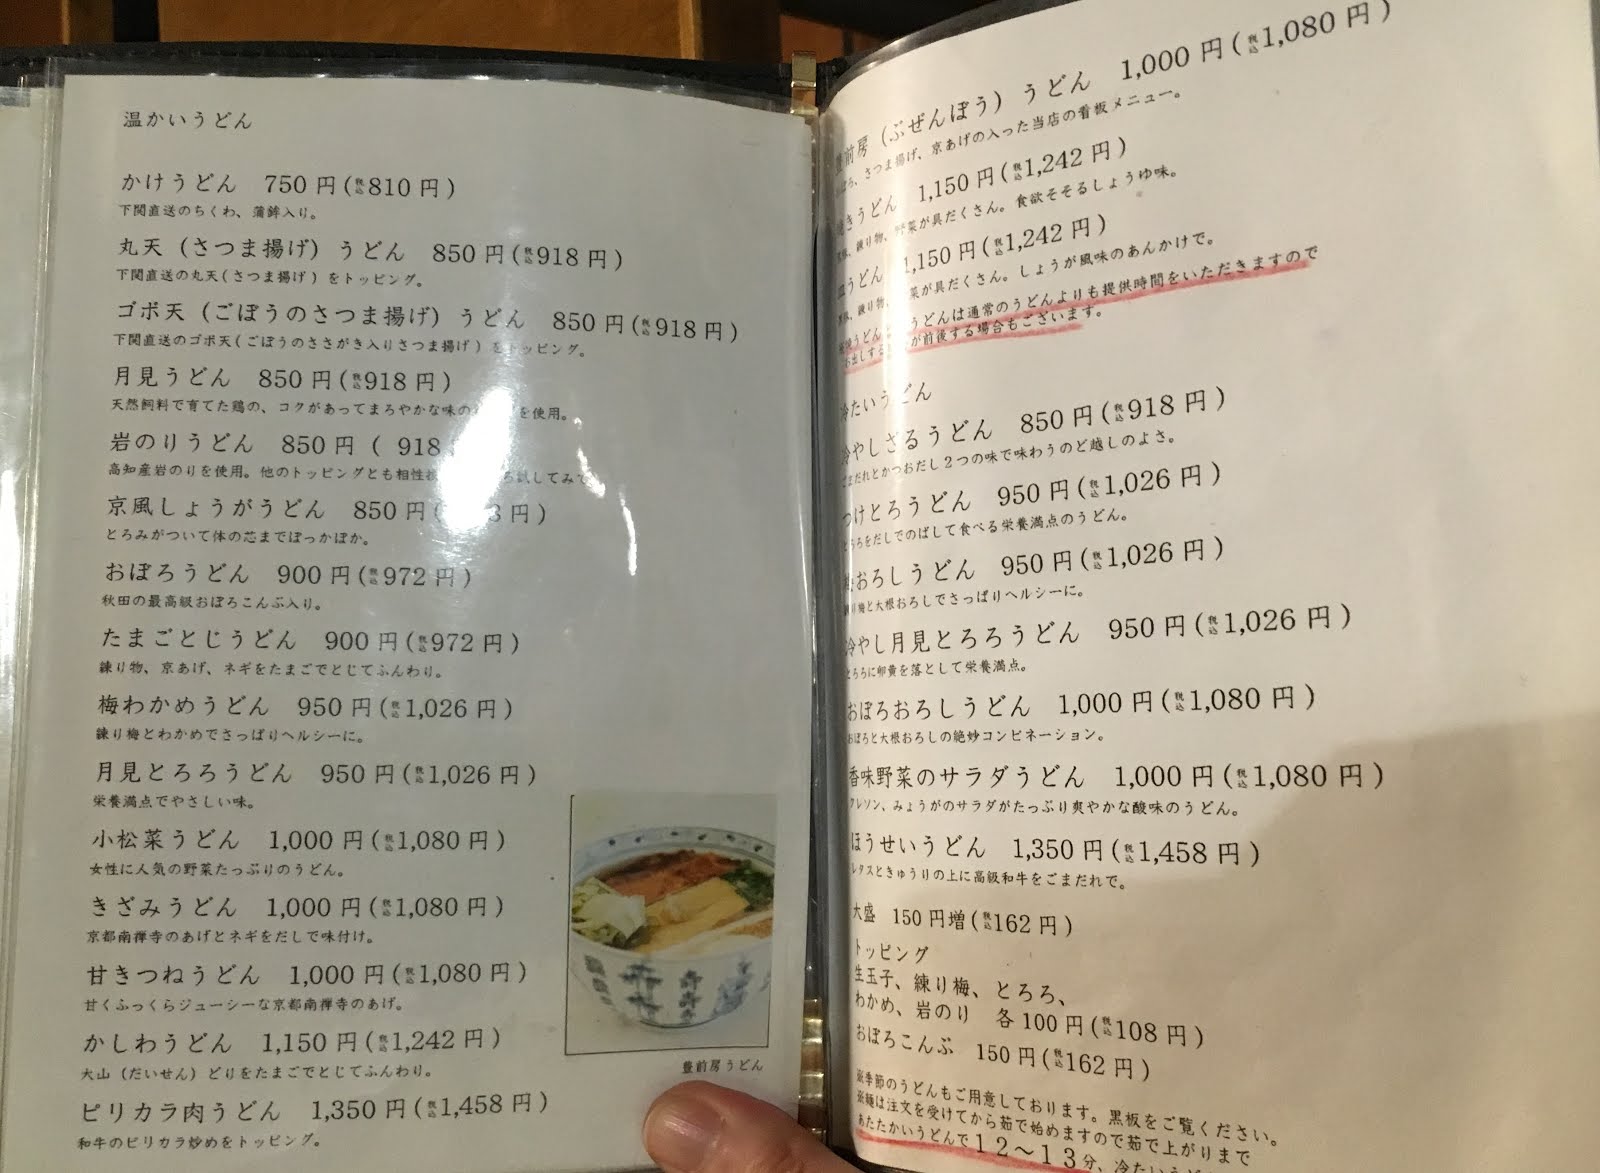 温かいうどん
かけうどん 750円(税込810円)
下関直送のちくわ、蒲鉾入り。
丸天(さつま揚げ)うどん 850円(税込918円)
下関直送の丸天(さつま揚げ)をトッピング。
ゴボ天(ごぼうのさつま揚げ)うどん 850円(税込918円)
下関直送のゴボ天(ごぼうのささがき入りさつま揚げ)をトッピング。
月見うどん 850円(税込918円)
天然飼料で育てた鶏の、コクがあってまろやかな味の を使用。
岩のりうどん 850円( 918
高知産岩のりを使用。他のトッピングとも相性 試してみて
京風しょうがうどん 850円( 円)
とろみがついて体の芯までぽっかぽか。
おぼろうどん 900円(税込972円)
秋田の最高級おぼろこんぶ入り。
たまごとじうどん 900円(税込972円)
練り物、京あげ、ネギをたまごでとじてふんわり。
梅わかめうどん 950円(税込1,026円)
練り梅とわかめでさっぱりヘルシーに。
月見とろろうどん 950円(税込1,026円)
栄養満点でやさしい味。
小松菜うどん 1,000円(税込1,080円)
女性に人気の野菜たっぷりのうどん。
きざみうどん 1,000円(税込1,080円)
京都南禅寺のあげとネギをだしで味付け。
甘きつねうどん 1,000円(税込1,080円)
甘くふっくらジューシーな京都南禅寺のあげ。
かしわうどん 1,150円(税込1,242円)
大山(だいせん)どりをたまごでとじてふんわり。
ピリカラ肉うどん 1,350円(税込1,458円)
和牛のピリカラ炒めをトッピング。
豊前房うどん
前房(ぶぜんぼう)うどん 1,000円(税込1,080円)
さつま揚げ、京あげの入った当店の看板メニュー。
きうどん 1,150円(税込1,242円)
練り物、野菜が具だくさん。食欲そそるしょうゆ味。
うどん 1,150円(税込1,242円)
練り物、 菜が具だくさん。しょうが風味のあんかけで。
うどんは通常のうどんよりも提供時間をいただきますので
お出しする が前後する場合もございます。
冷たいうどん
冷やしざるうどん 850円(税込918円)
ごまだれとかつおだし2つの味で味わうのど越しのよさ。
つけとろうどん 950円(税込1,026円)
とろろをだしでのばして食べる栄養満点のうどん。
おろしうどん 950円(税込1,026円)
練り梅と大根おろしでさっぱりヘルシーに。
冷やし月見とろろうどん 950円(税込1,026円)
とろろに卵黄を落として栄養満点。
おぼろおろしうどん 1,000円(税込1,080円)
おぼろと大根おろしの絶妙コンビネーション。
香味野菜のサラダうどん 1,000円(税込1,080円)
クレソン、みょうがのサラダがたっぷり爽やかな酸味のうどん。
ほうせいうどん 1,350円(税込1,458円)
レタスときゅうりの上に高級和牛をごまだれで。
大盛 150円増(税込162円)
トッピング
生玉子、練り梅、とろろ、
わかめ、岩のり 各100円(税込108円)
おぼろこんぶ 150円(税込162円)
※季節のうどんもご用意しております。黒板をご覧ください。
※麺は注文を受けてから茹で始めますので茹で上がりまで
あたたかいうどんで12～13分、冷たいうど